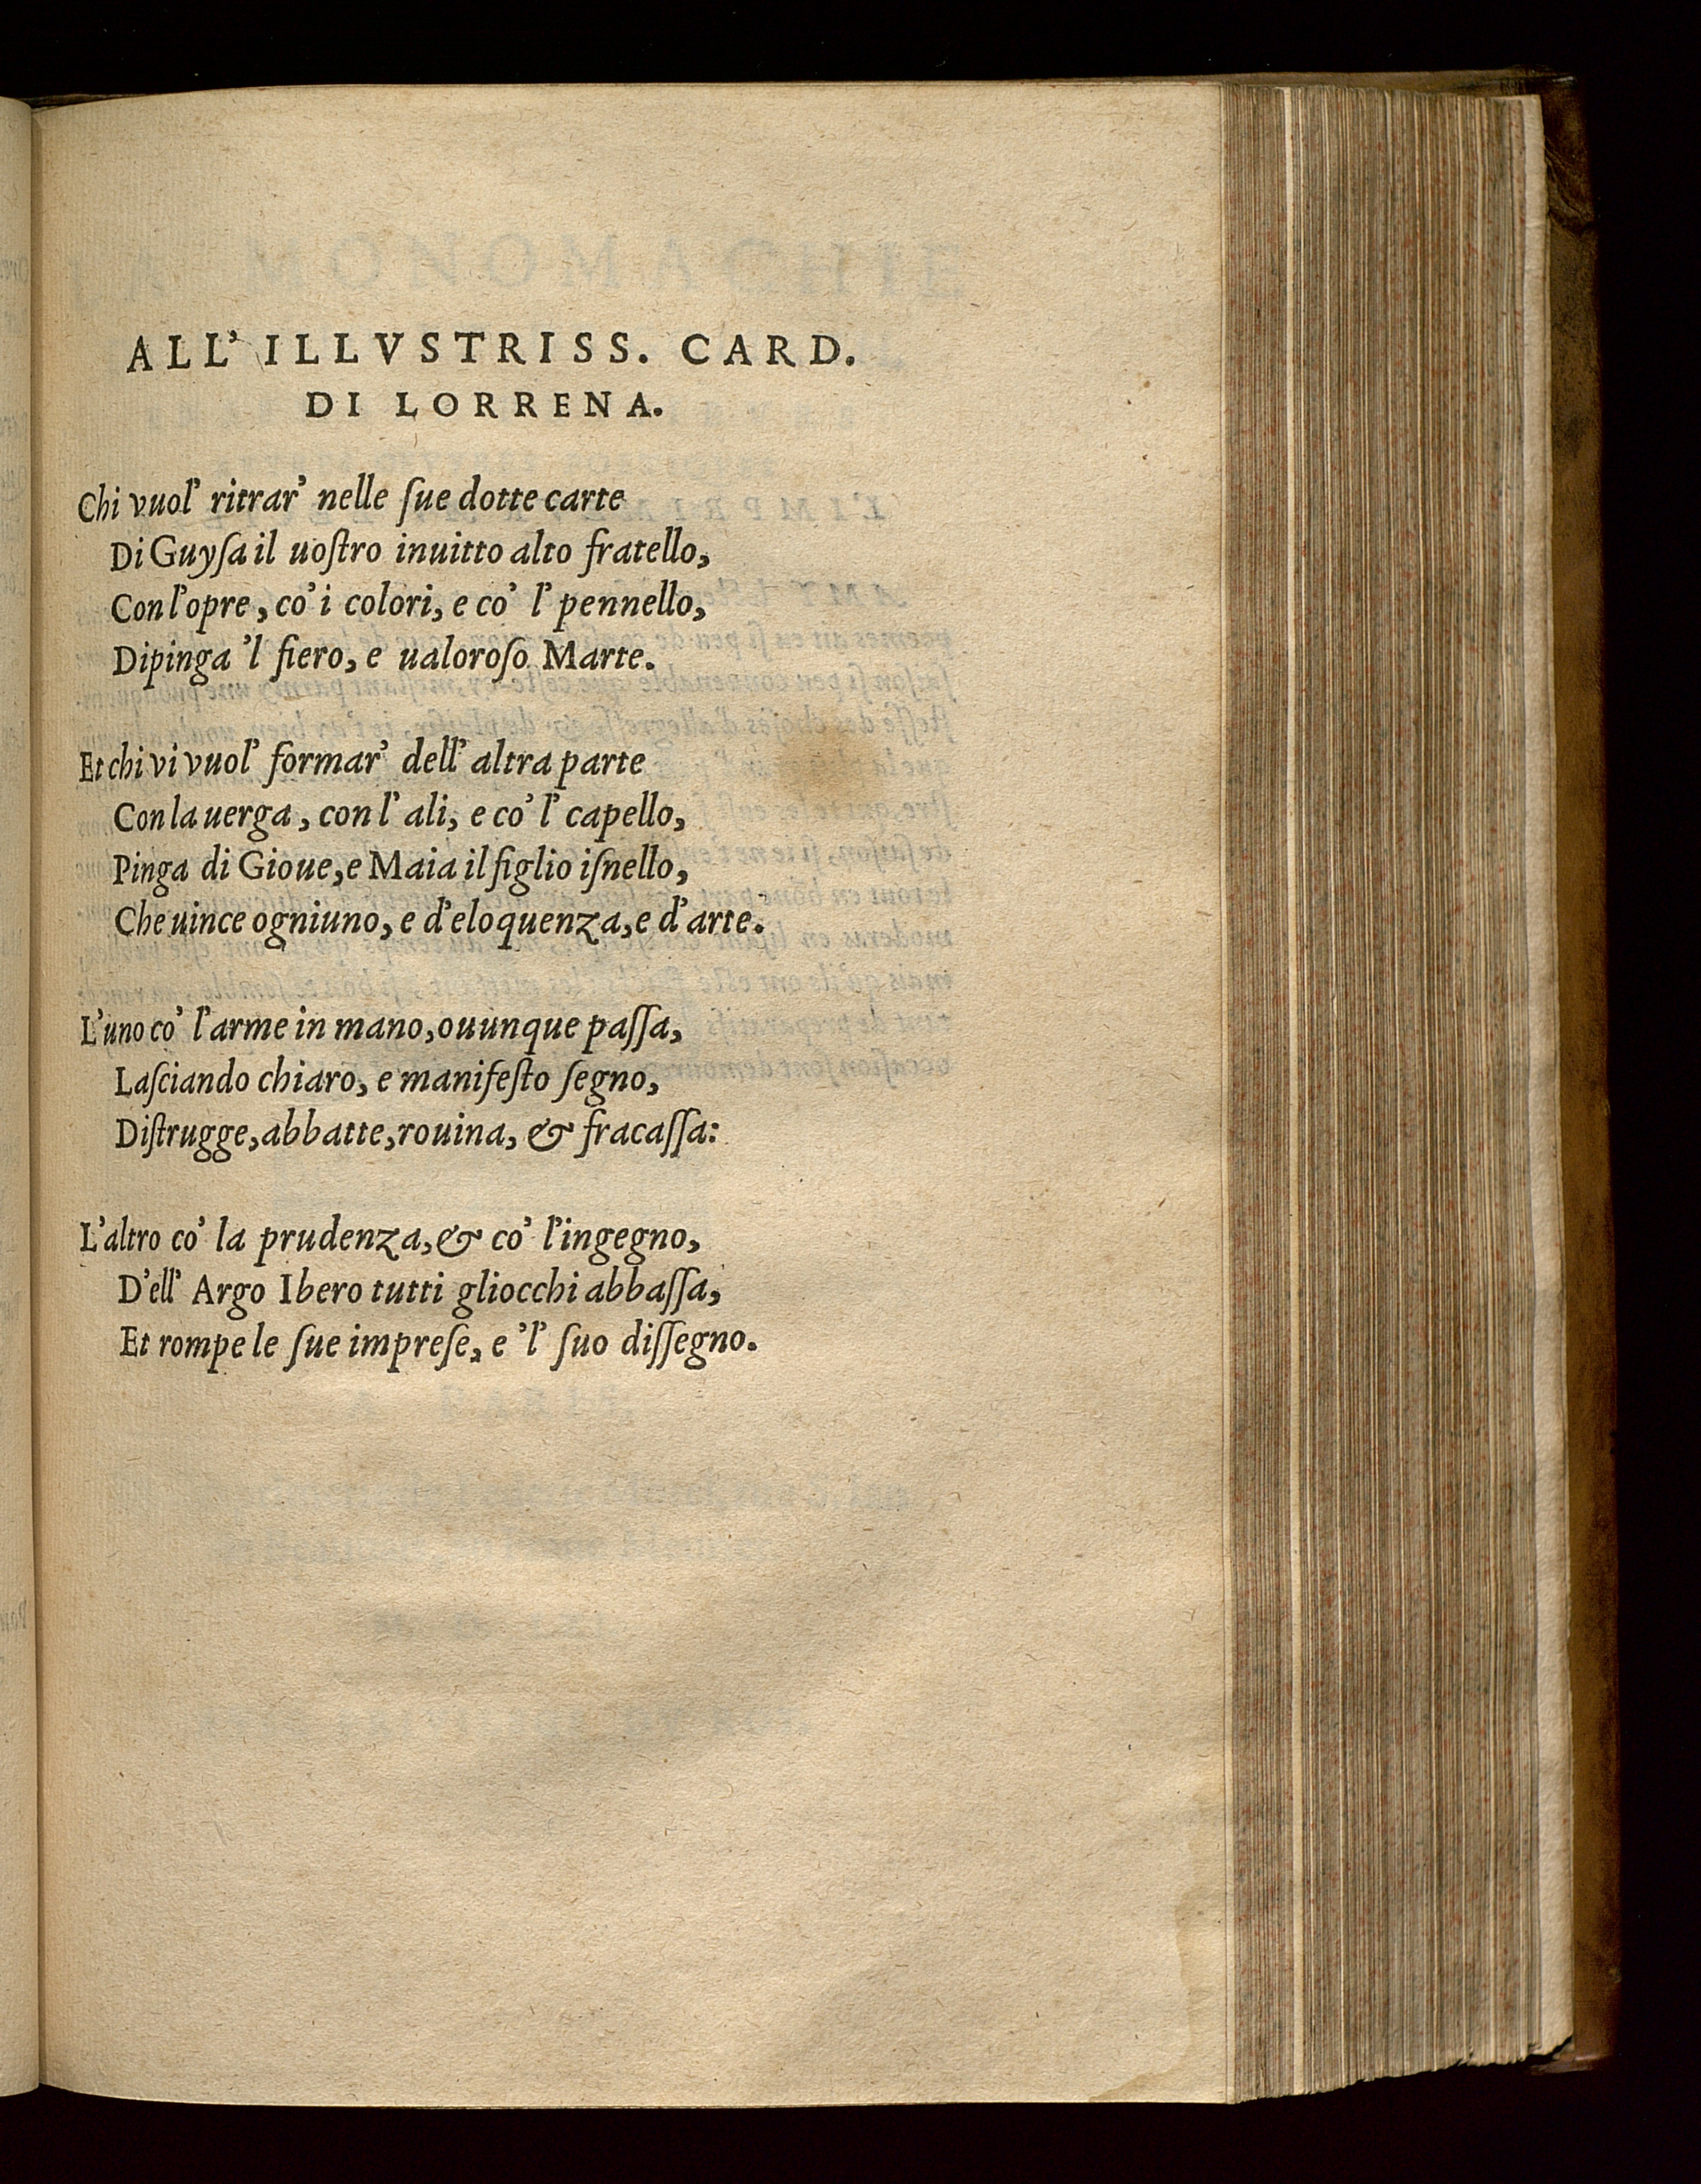 ALL' ILLVSTRISS. CARD.
DI LORRENA.
Chi vuol' ritrar' nelle ſue dotte carte
Di Guyſa il uoſtro inuitto alto fratello,
Con l'opre, co' i colori, e co' l' pennello,
Dipinga 'l fiero, e ualoroſo Marte.
Et chi vi vuol' formar' dell' altra parte
Con la uerga, con l' ali, e co' l' capello,
Pinga di Gioue, e Maia il figlio iſnello,
Che uince ogniuno, e d'eloquenza, e d'arte.
L'uno co' l'arme in mano, ouunque paſſa,
Laſciando chiaro, e manifeſto ſegno,
Diſtrugge, abbatte, rouina, & fracaſſa:
L'altro co' la prudenza, & co' l'ingegno,
D'ell' Argo Ibero tutti gliocchi abbaſſa,
Et rompe le ſue impreſe, e 'l' ſuo diſſegno.